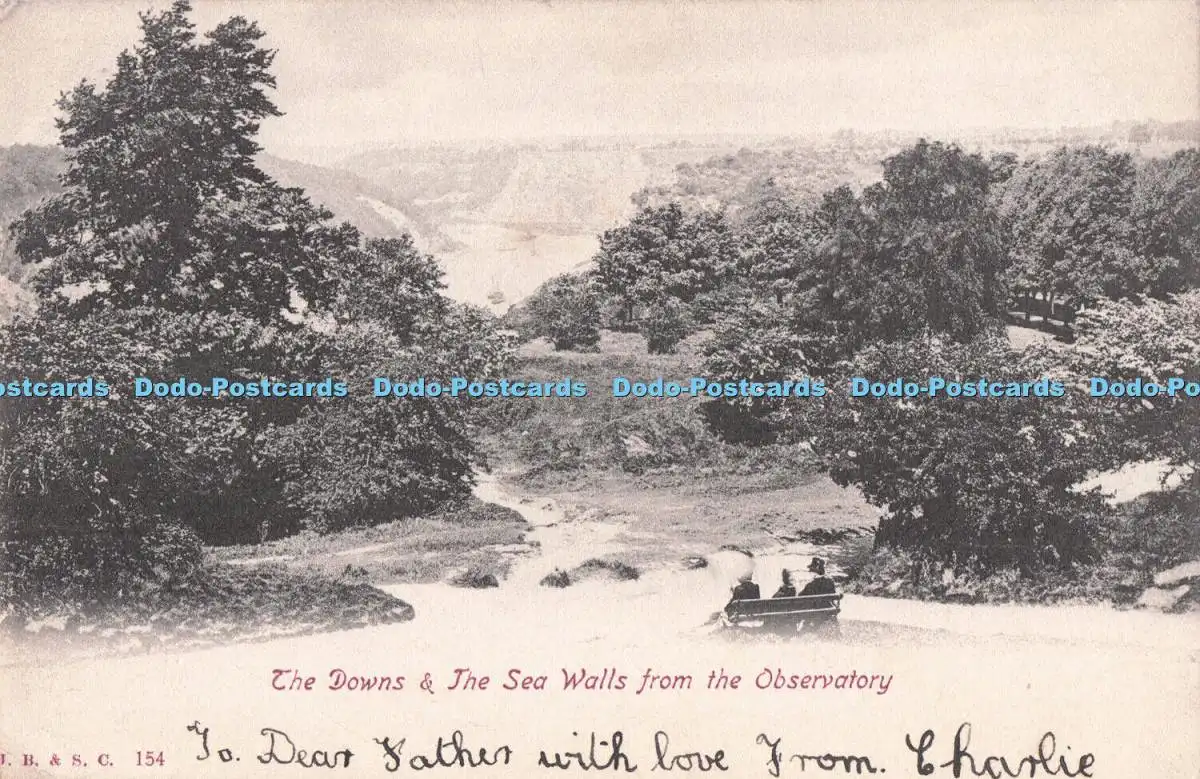 Postcards Dodo-Postcards Dodo-Postcards Dodo-Postcards Dodo-Postcards Dodo-Postcards
The Downs & The Sea Walls from the Observatory
J. B. & S. C. 154 To. Dear Father with love From. Charlie